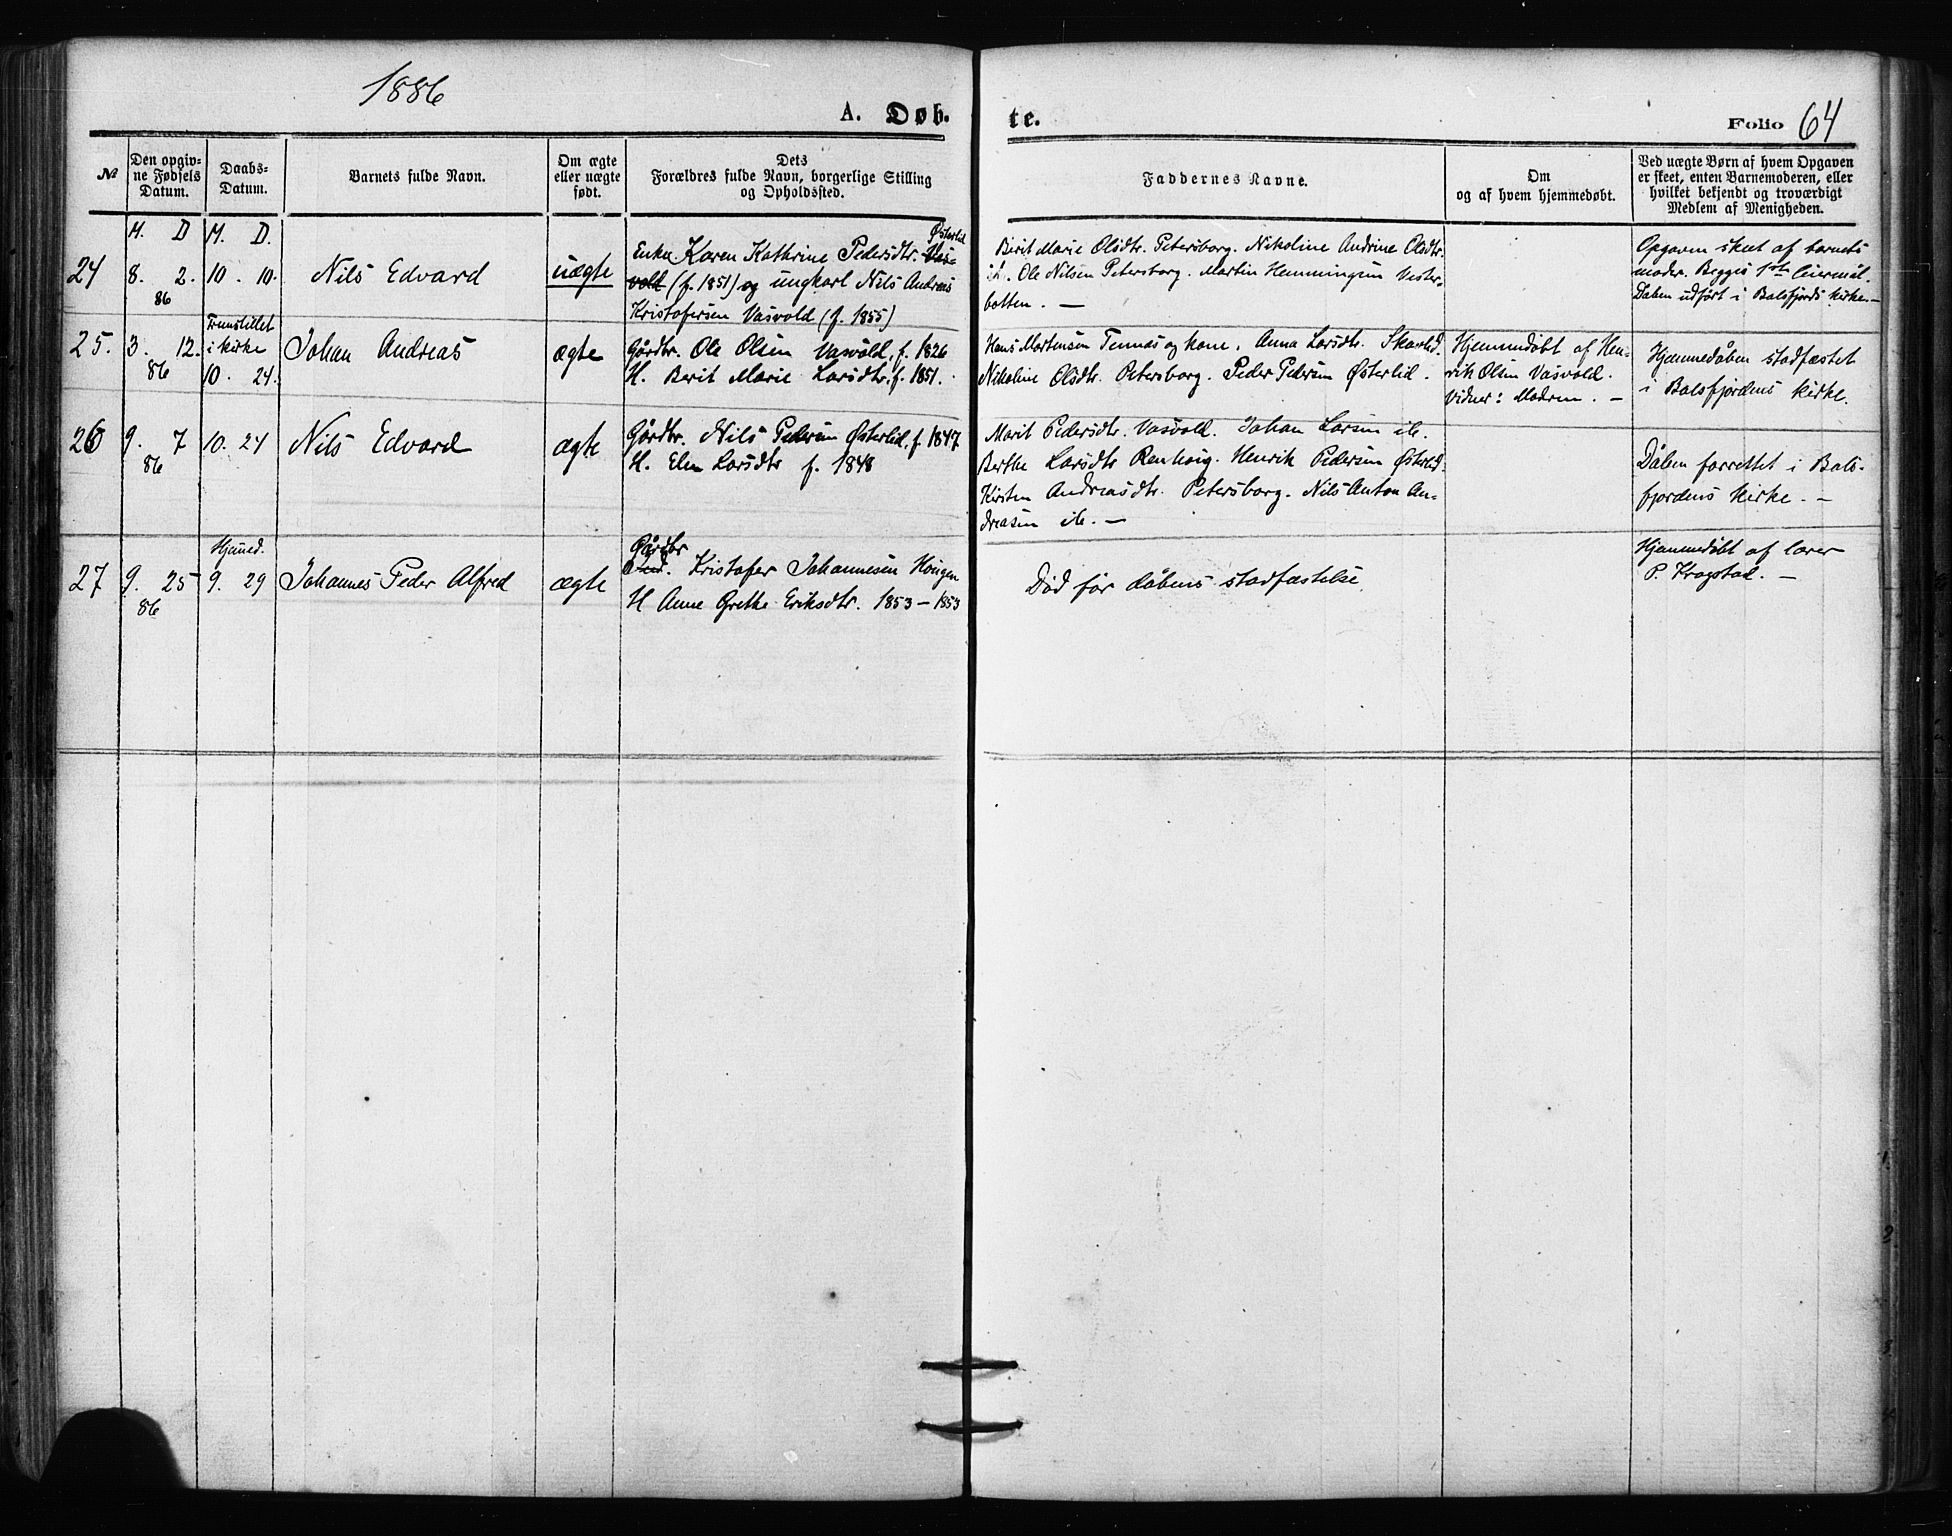 1886
A. Døb-
te.
Folio 64
№
Den opgiv-
ne Fødsels
Datum.
Daabs-
Datum.
Barnets fulde Navn.
Om ægte
eller uægte
født.
Dets
Forældres fulde Navn, borgerlige Stilling
og Opholdssted.
Faddernes Navne.
Om
og af hvem hjemmedøbt.
Ved uægte Børn af hvem Opgaven
er skeet, enten Barnemoderen, eller
hvilket bekjendt og troværdigt
Medlem af Menigheden.
M. D
M. D.
24
8. 2.
86
10. 10.
Nils Edvard
uægte
Østerlid
Enke Karen Kathrine Pedersdtr. Vas-
vold (f. 1851) og ungkarl Nils Andreas
Kristofersen Vasvold (f. 1855)
Berit Marie Olsdtr. Petersborg. Nikoline Andrine Olsdtr.
ib. Ole Nilsen Petersborg. Martin Hemmingsen Vester-
botten. —
Opgaven skeet af barnets
moder. Begges 1ste leiermål.
Dåben udført i Balsfjords kirke. —
25.
3. 12.
86
Fremstillet
i kirke
10. 24.
Johan Andreas
ægte
Gårdbr. Ole Olsen Vasvold, f. 1826
H. Berit Marie Larsdtr. f. 1851.
Hans Mortensen Tennæs og kone. Anna Larsdtr.
Nikoline Olsdtr. Petersborg. Peder Pedersen Østerlid.
Hjemmedøbt af Hen-
rik Olsen Vasvold.
Vidner: Modren. —
Hjemmedåben stadfæstet
i Balsfjordens kirke.
26
9. 7
86
10. 24
Nils Edvard
ægte
Gårdbr. Nils Pedersen Østerlid, f. 1847
H. Elen Larsdtr f. 1848
Marit Pedersdtr. Vasvold. Johan Larsen ib.
Berthe Larsdtr Renhoug. Henrik Pedersen Østerlid.
Kirsten Andreasdtr. Petersborg. Nils Anton An-
dreasen ib. —
Dåben forrettet i Bals-
fjordens kirke. —
27
9. 25
86
Hjemed.
9. 29
Johannes Peder Alfred
ægte
Gårdbr
Ind. Kristofer Johannesen Hougen
H Anne Grethe Eriksdtr. 1853 – 1853
Død før dåbens stadfæstelse.
Hjemmedøbt af lærer
P. Krogstad. —